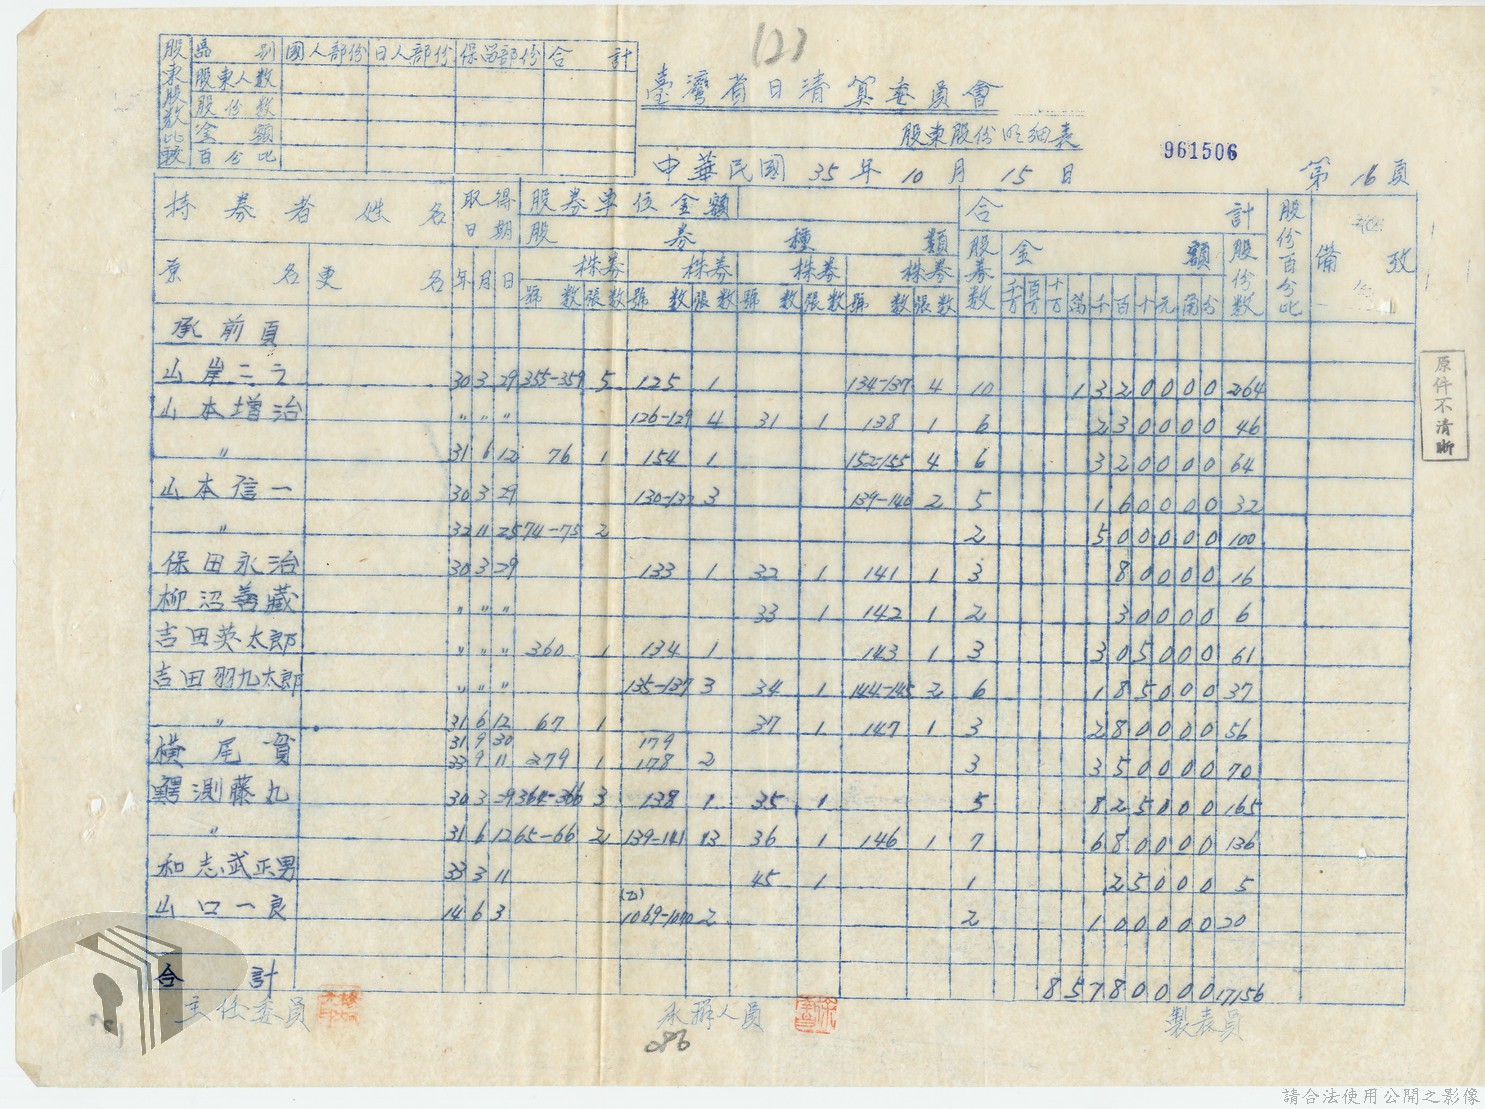 123
股東股數比較
區別 國人部份 日人部份 保留部份 合計
股東人數
股份數
金額
百分比
臺灣省日清算委員會
股東股份明細表
961506
中華民國 35 年 10 月 15 日
第 16 頁
持券者姓名 取得日期 股券單位金額 合計 股份百分比 備攷
股券種類 股券數 金額 股份數
原名 更名 年 月 日 株券 株券 株券 株券
號數 張數 號數 張數 號數 張數 號數 張數 千万 百万 十万 萬 千 百 十 元 角 分
承前頁
山岸二三 30 3 29 355-359 5 125 1 134-137 4 10 1 3 2 0 0 0 0 264
山本增治 〃 〃 〃 126-129 4 31 1 138 1 6 2 3 0 0 0 0 46
〃 31 6 12 76 1 154 1 152-155 4 6 3 2 0 0 0 0 64
山本信一 30 3 29 130-132 3 139-140 2 5 1 6 0 0 0 0 32
〃 32 11 25 74-75 2 2 5 0 0 0 0 0 100
保田永治 30 3 29 133 1 32 1 141 1 3 8 0 0 0 0 16
柳沼善藏 〃 〃 〃 33 1 142 1 2 3 0 0 0 0 6
吉田英太郎 〃 〃 〃 360 1 134 1 143 1 3 3 0 5 0 0 0 61
吉田羽九太郎 〃 〃 〃 135-137 3 34 1 144-145 2 6 1 8 5 0 0 0 37
〃 31 6 12 67 1 37 1 147 1 3 2 8 0 0 0 0 56
31 9 30 179
橫尾貫 33 9 11 279 1 178 2 3 3 5 0 0 0 0 70
鰐測藤丸 30 3 29 364-366 3 138 1 35 1 5 8 2 5 0 0 0 165
〃 31 6 12 65-66 2 139-141 3 36 1 146 1 7 6 8 0 0 0 0 136
和志武正男 33 3 11 45 1 1 2 5 0 0 0 5
山口一良 14 6 3 (乙) 1069-1070 2 2 1 0 0 0 0 0 20
合計 8 5 7 8 0 0 0 0 17156
主任委員 承辦人員 製表員
086
原件不清晰
請合法使用公開之影像